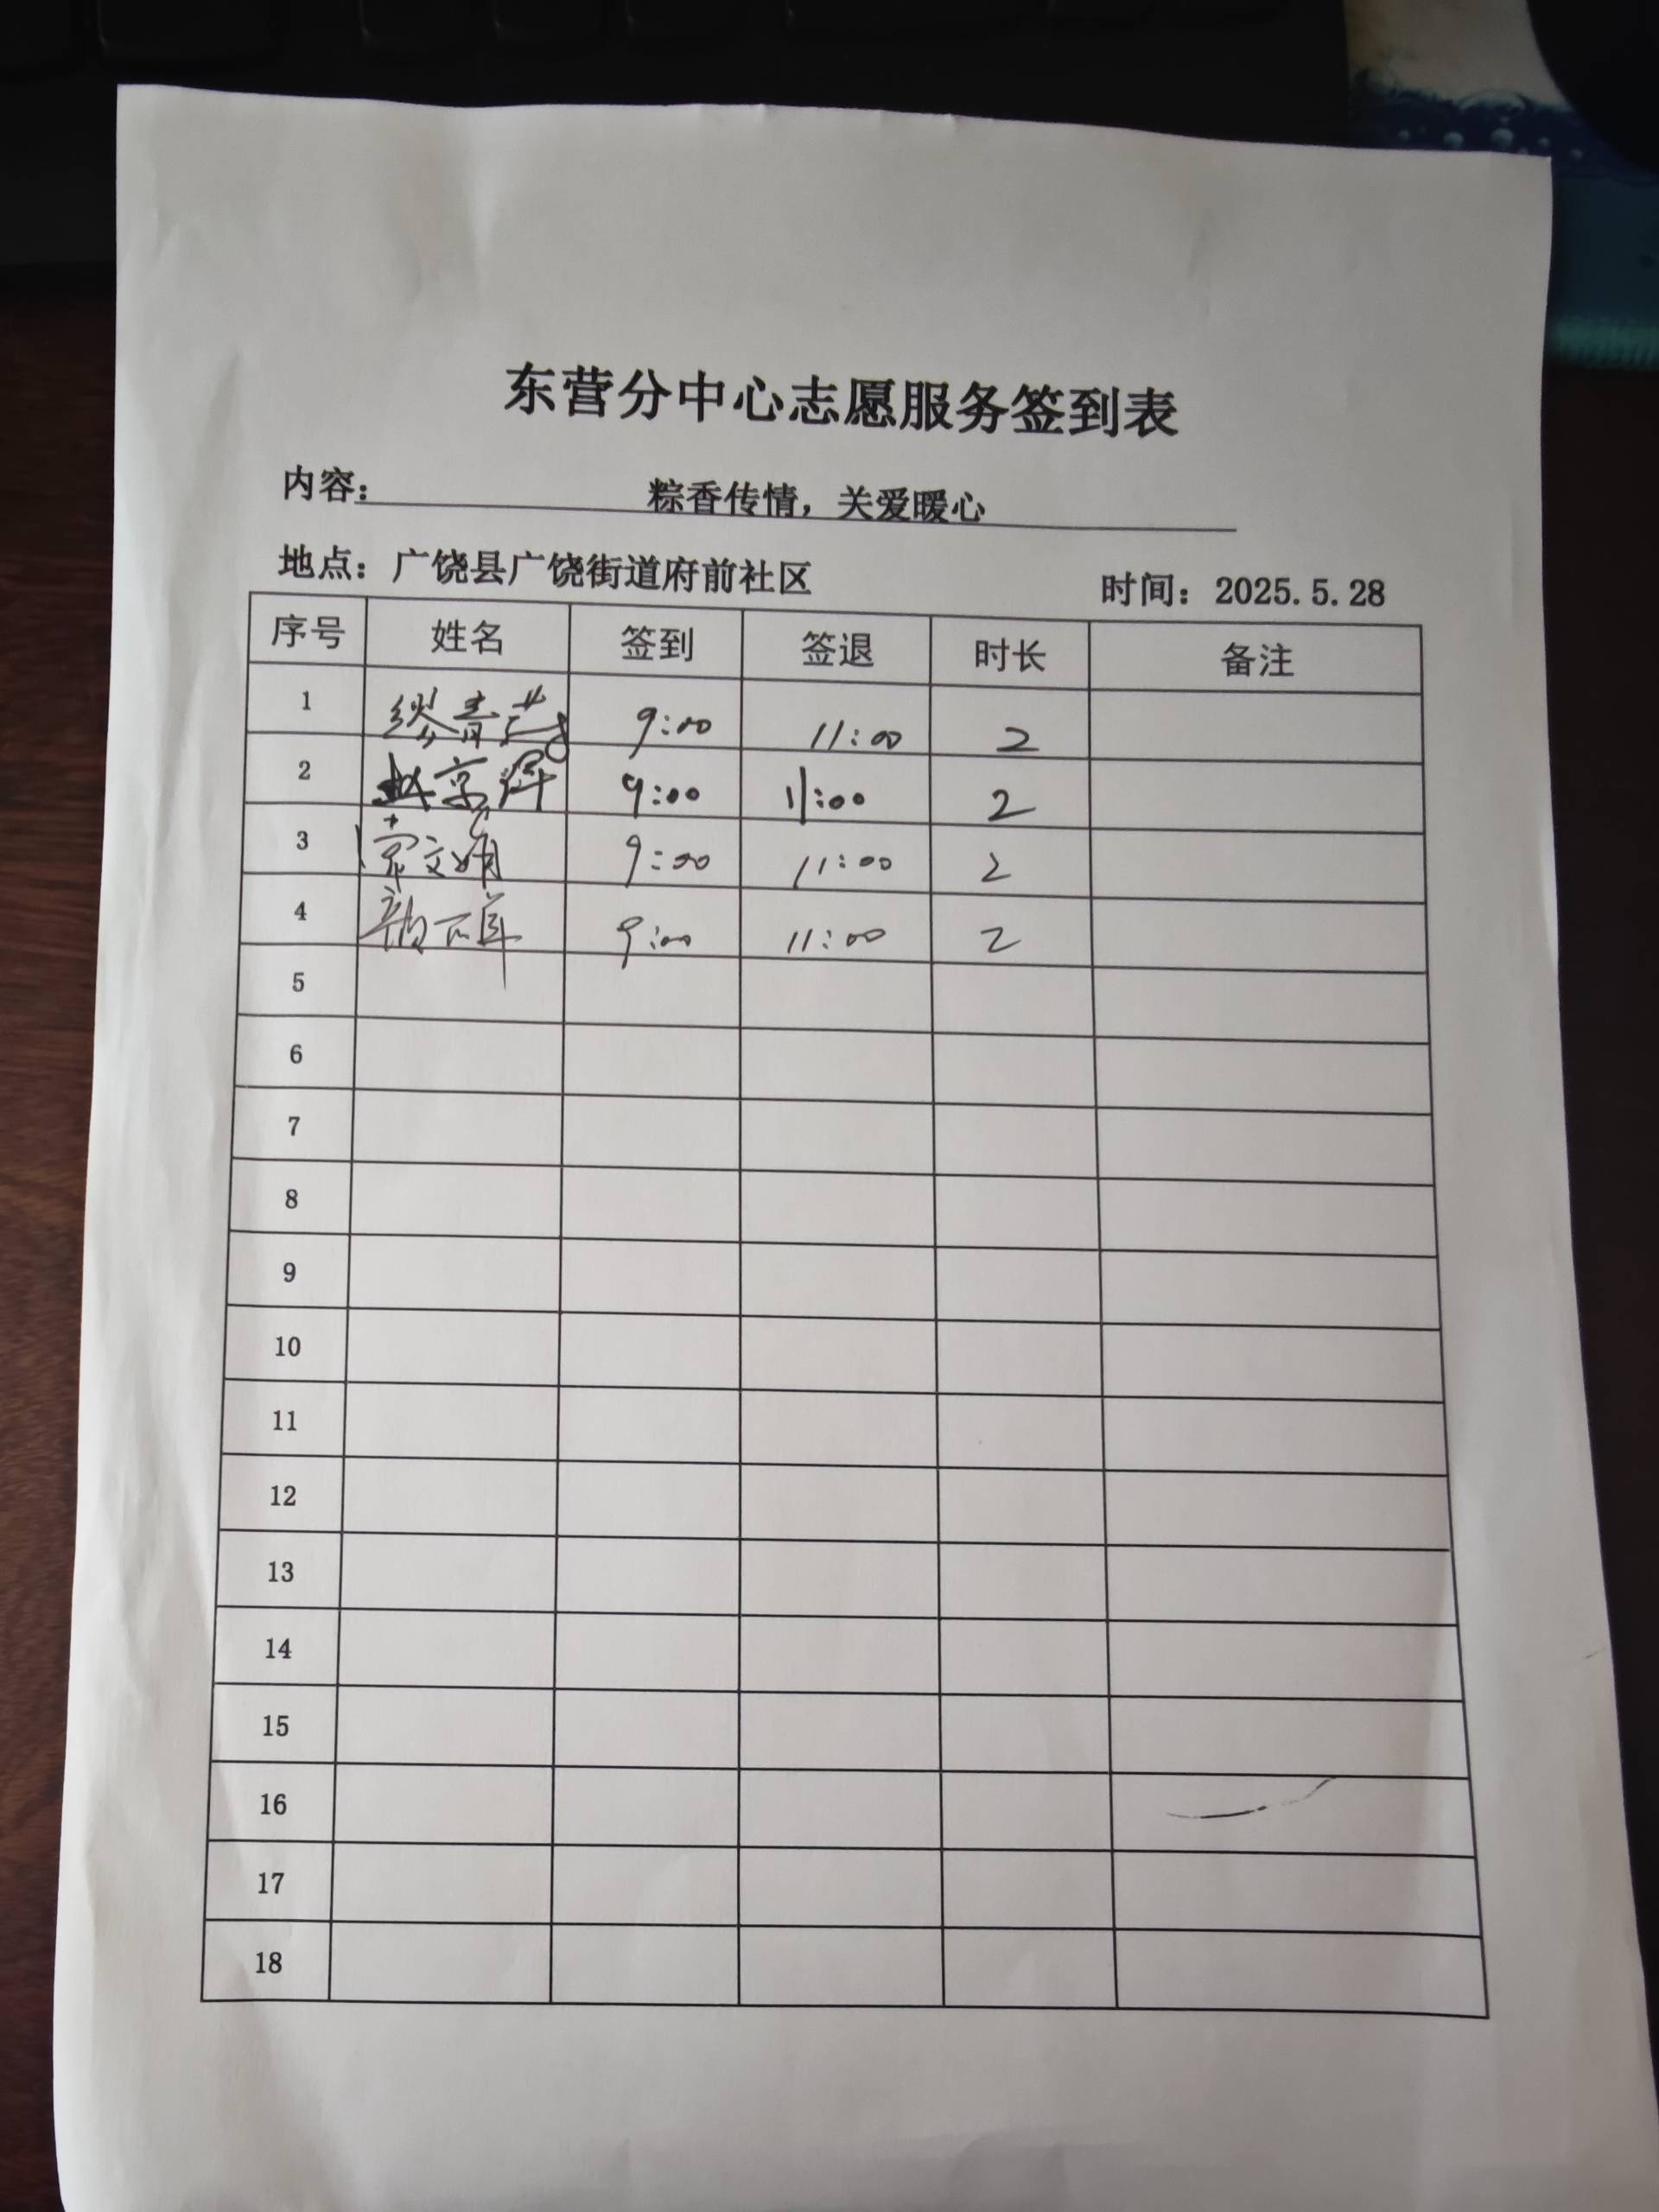 东营分中心志愿服务签到表
内容: 粽香传情，关爱暖心
地点：广饶县广饶街道府前社区 时间：2025.5.28
序号 姓名 签到 签退 时长 备注
1 9:00 11:00 2
2 9:00 11:00 2
3 9:00 11:00 2
4 9:00 11:00 2
5
6
7
8
9
10
11
12
13
14
15
16
17
18